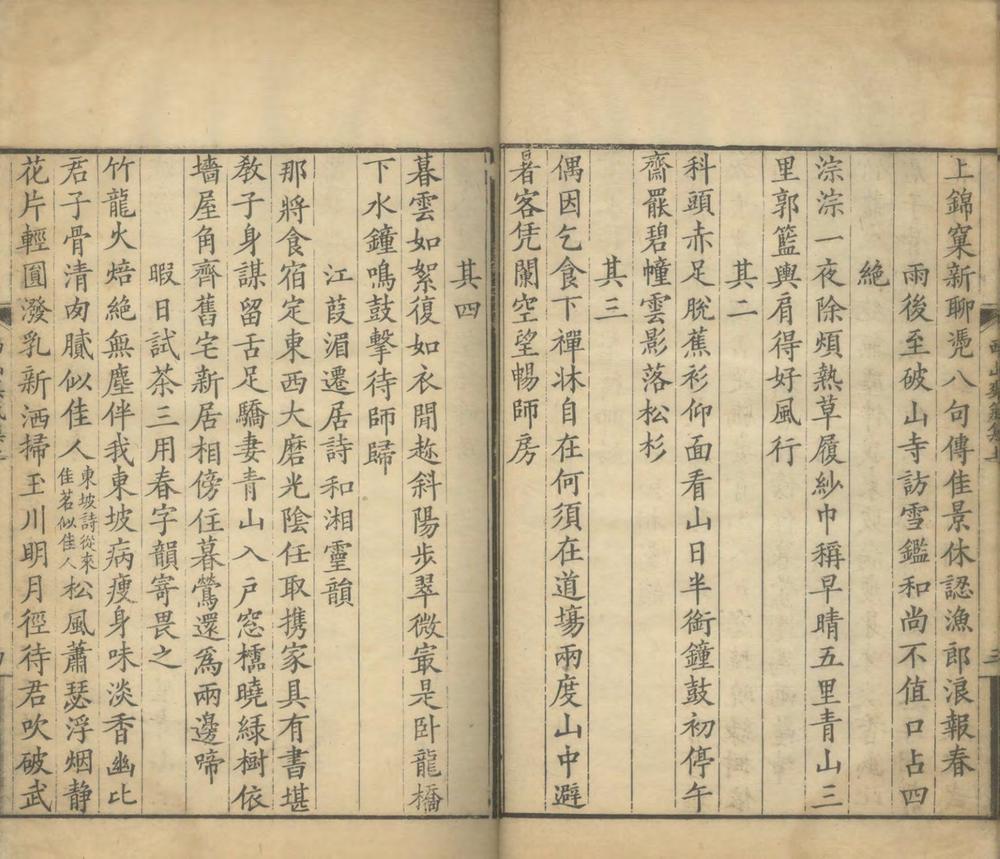 上錦窠新聊凴八句傳佳景休認漁郎浪報春
雨後至破山寺訪雪鑑和尚不值口占四
絶
淙淙一夜除煩熱草履紗巾稱早晴五里青山三
里郭籃輿肩得好風行
其二
科頭赤足脫蕉衫仰面看山日半銜鐘鼓初停午
齋罷碧幢雲影落松杉
其三
偶因乞食下禪牀自在何須在道場兩度山中避
暑客凭闌空望暢師房
其四
暮雲如絮復如衣閒趂斜陽步翠微㝡是卧龍橋
下水鐘鳴鼓擊待師歸
江葭湄遷居詩和湘靈韻
那將食宿定東西大磨光陰任取携家具有書堪
敎子身謀留舌足驕妻青山入戶窓櫺曉緑樹依
墻屋角齊舊宅新居相傍住暮鶯還爲兩邊啼
暇日試茶三用春字韻寄畏之
竹龍火焙絶無塵伴我東坡病瘦身味淡香幽比
君子骨清肉膩似佳人東坡詩從來佳茗似佳人松風蕭瑟浮烟静
花片輕圓潑乳新洒掃玉川明月徑待君吹破武